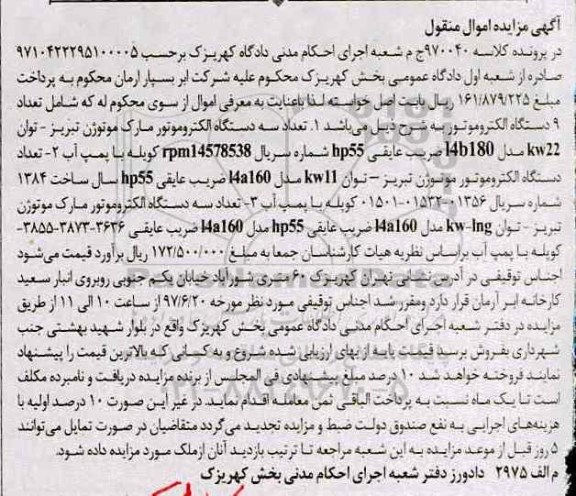 آگهی مزایده اموال منقول
در پرونده کلاسه ۹۷۰۰۴۰ج م شعبه اجرای احکام مدنی دادگاه کهریزک برحسب ۹۷۱۰۴۲۲۲۹۵۱۰۰۰۰۵
صادره از شعبه اول دادگاه عمومی بخش کهریزک محکوم علیه شرکت ابر بسپار ارمان محکوم به پرداخت
مبلغ ۱۶۱/۸۷۹/۲۲۵ ریال بابت اصل خواسته لذا باعنایت به معرفی اموال از سوی محکوم له که شامل تعداد
۹ دستگاه الکتروموتور به شرح ذیل می‌باشد ۱. تعداد سه دستگاه الکتروموتور مارک موتوژن تبریز – توان
kw22 مدل l4b180 ضریب عایقی hp55 شماره سریال rpm14578538 کوپله با پمپ آب ۲- تعداد
دستگاه الکتروموتور موتوژن تبریز – توان kw11 مدل l4a160 ضریب عایقی hp55 سال ساخت ۱۳۸۴
شماره سریال ۰۱۳۵۶-۰۱۵۳۲-۰۱۵۰۱ کوپله با پمپ آب ۳- تعداد سه دستگاه الکتروموتور مارک موتوژن
تبریز - توان kw-lng مدل l4a160 ضریب عایقی hp55 مدل l4a160 ضریب عایقی ۳۶۳۶-۳۸۷۳-۳۸۵۵-
کوپله با پمپ آب براساس نظریه هیات کارشناسان جمعا به مبلغ ۱۷۲/۵۰۰/۰۰۰ ریال برآورد قیمت می‌شود
اجناس توقیفی در آدرس نشانی تهران کهریزک ۶۰ متری شورآباد خیابان یکم جنوبی روبروی انبار سعید
کارخانه ابر آرمان قرار دارد ومقرر شد اجناس توقیفی مورد نظر مورخه ۹۷/۶/۲۰ از ساعت ۱۰ الی ۱۱ از طریق
مزایده در دفتر شعبه اجرای احکام مدنی دادگاه عمومی بخش کهریزک واقع در بلوار شهید بهشتی جنب
شهرداری بفروش برسد قیمت پایه از بهای ارزیابی شده شروع و به کسانی که بالاترین قیمت را پیشنهاد
نمایند فروخته خواهد شد ۱۰ درصد مبلغ پیشنهادی فی المجلس از برنده مزایده دریافت و نامبرده مکلف
است تا یک ماه نسبت به پرداخت الباقی ثمن معامله اقدام نماید. در غیر این صورت ۱۰ درصد اولیه با
هزینه‌های اجرایی به نفع صندوق دولت ضبط و مزایده تجدید می‌گردد متقاضیان در صورت تمایل می‌توانند
۵ روز قبل از موعد مزایده به این شعبه مراجعه تا ترتیب بازدید آنان ازملک مورد مزایده داده شود.
م الف ۲۹۷۵ دادورز دفتر شعبه اجرای احکام مدنی بخش کهریزک